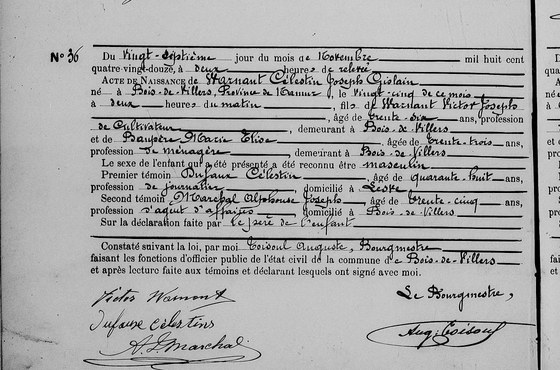 N° 36
Du Vingt-septième jour du mois de Novembre mil huit cent
quatre-vingt-douze, à deux heures de relevée
ACTE DE NAISSANCE de Warnant Célestin Joseph Ghislain
né à Bois-de-Villers, Province de Namur, le vingt-cinq de ce mois
à deux heures du matin, fils de Warnant Victor Joseph
, âgé de trente-six ans, profession
de Cultivateur, demeurant à Bois-de-Villers
et de Marie Elise, âgée de trente-trois ans,
profession de ménagère, demeurant à Bois-de-Villers.
Le sexe de l'enfant qui a été présenté a été reconnu être masculin
Premier témoin Dufaux Célestin, âgé de quarante-huit ans,
profession de journalier, domicilié à Lesve
Second témoin Maréchal Alphonse Joseph, âgé de trente-cinq ans,
profession d'agent d'affaires domicilié à Bois-de-Villers
Sur la déclaration faite par le père de l'enfant
Constaté suivant la loi, par moi Toisoul Auguste, Bourgmestre
faisant les fonctions d'officier public de l'état civil de la commune de Bois-de-Villers
et après lecture faite aux témoins et déclarant lesquels ont signé avec moi.
Victor Warnant
Le Bourgmestre,
Dufaux célestins
Aug. Toisoul
A. J. Marchal